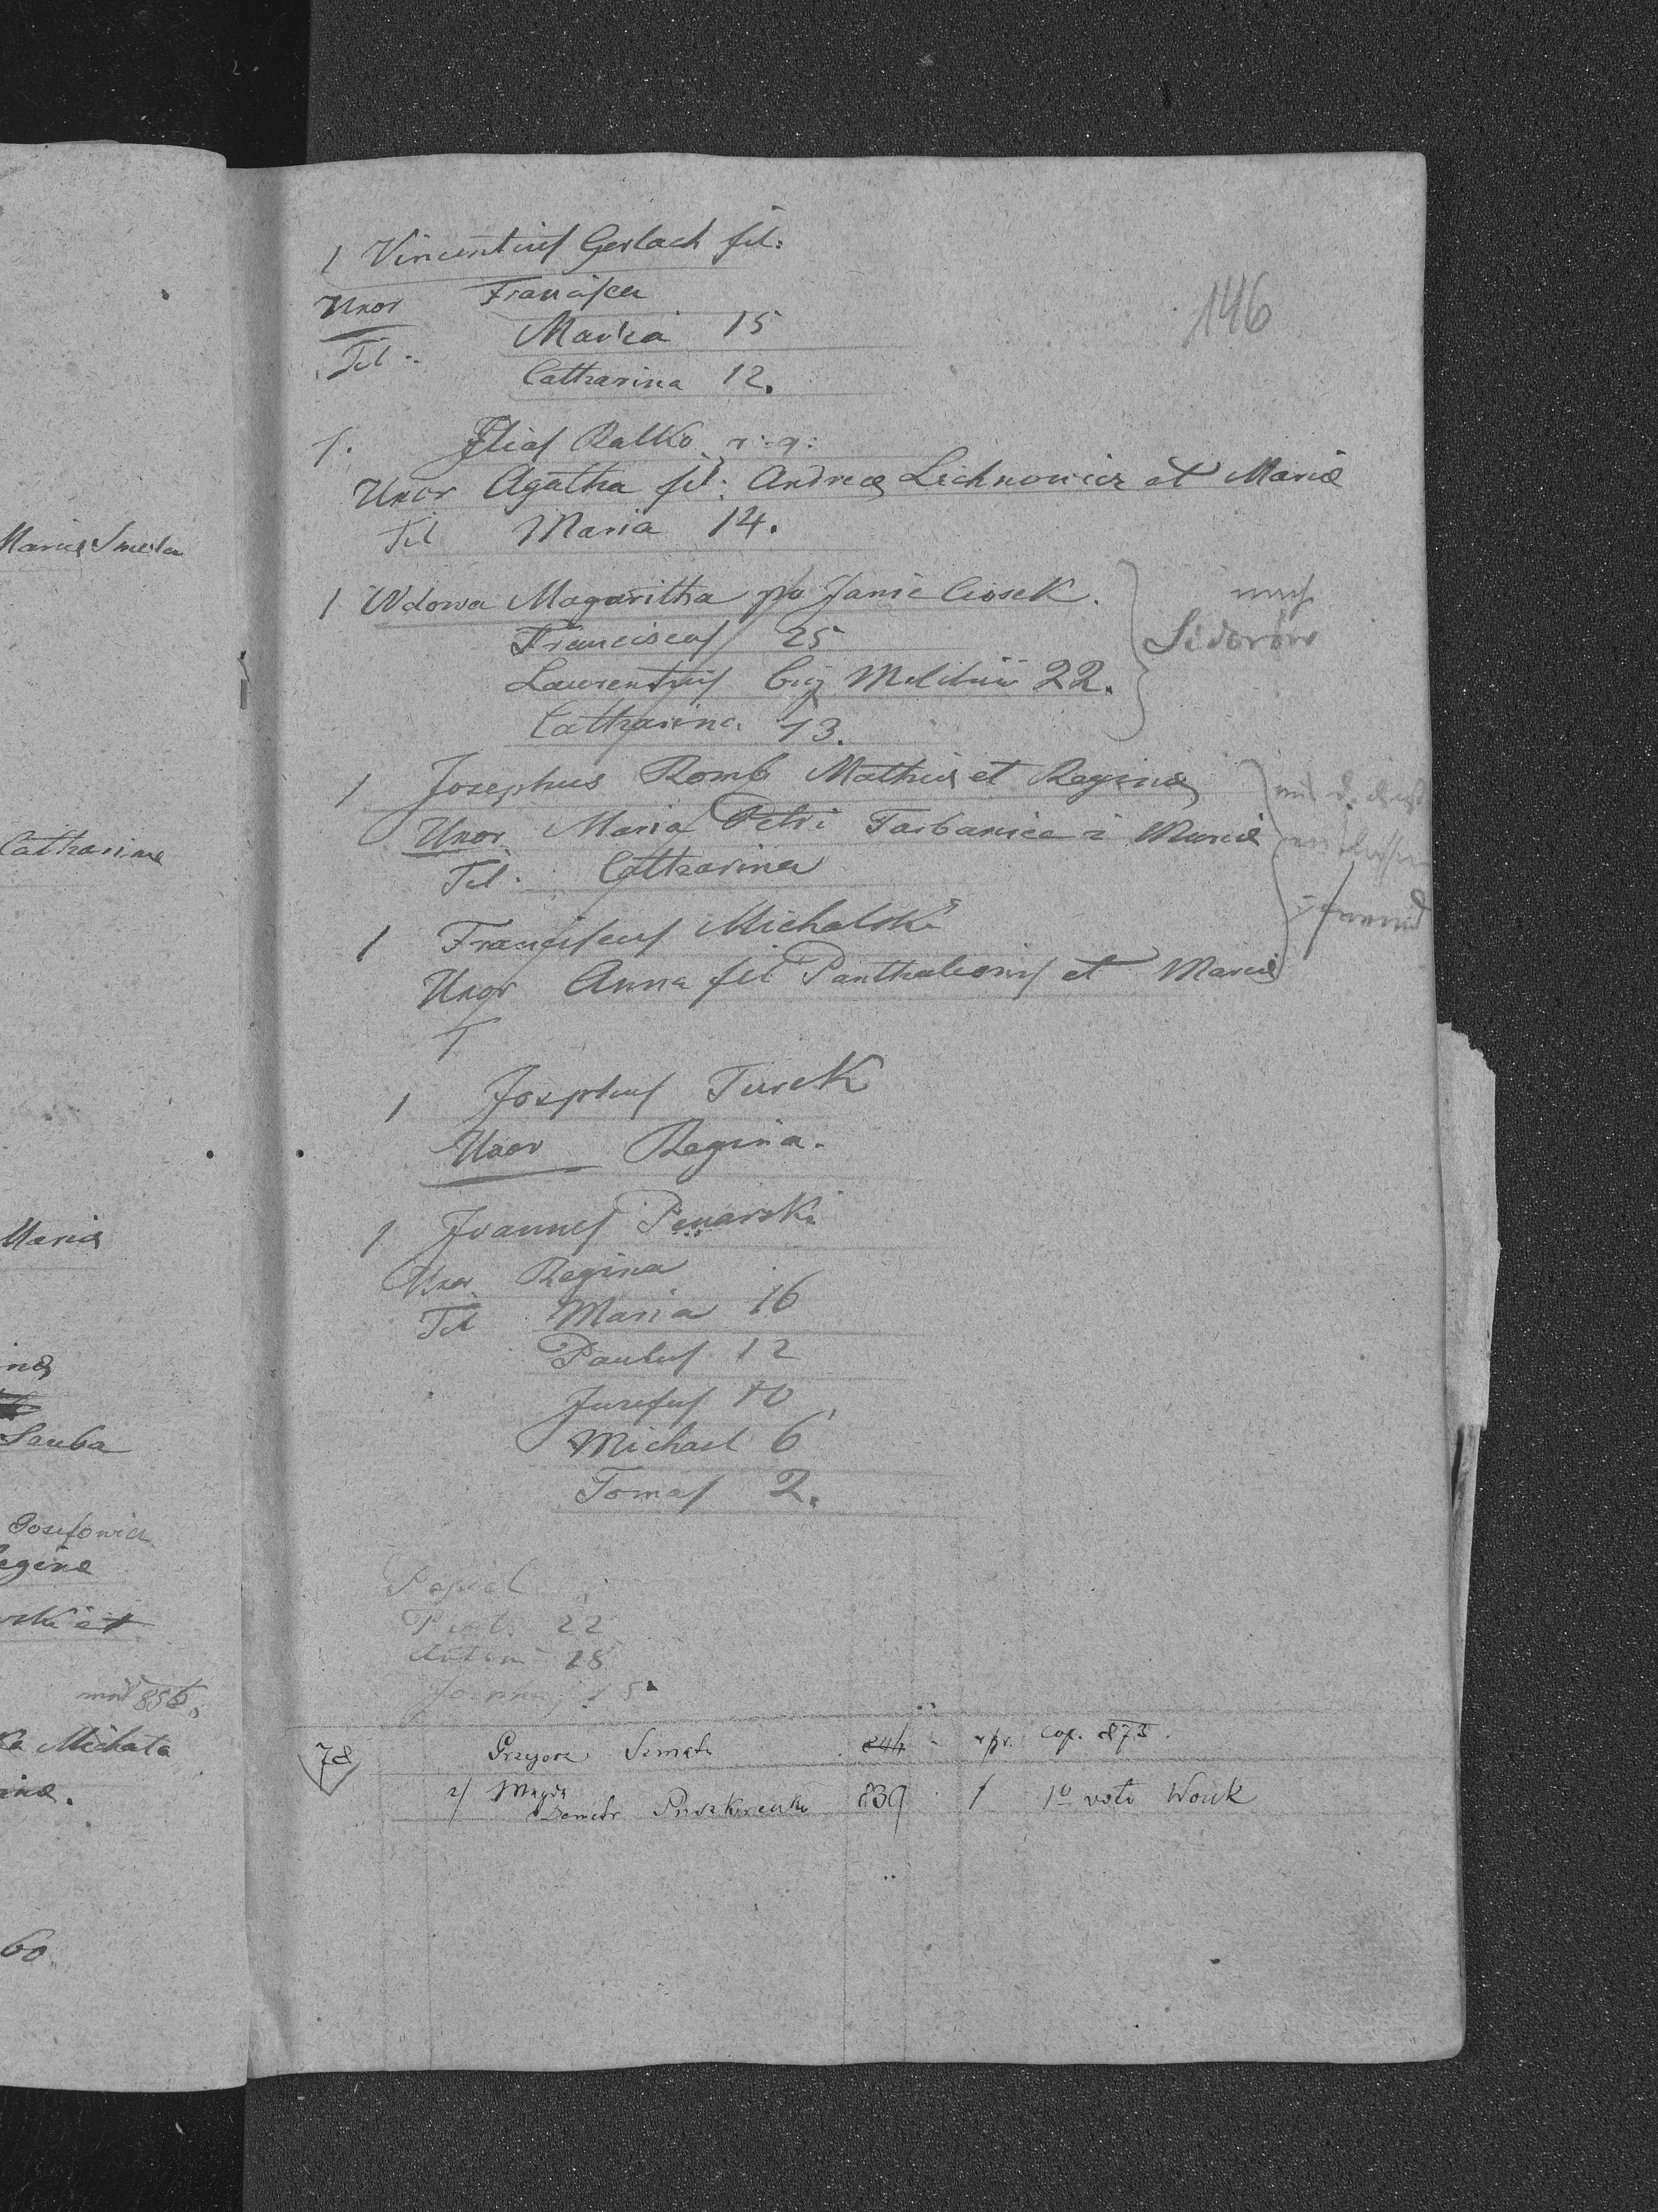 146
1 Vincentius Gerlach fil:
Uxor Francisca
Fil: Maria 15
Catharina 12.
1. Elias Ratko r: g:
Uxor Agatha fil: Andreæ Lichnowicz et Mariæ
Fil Maria 14.
1 Wdowa Magaritha po Janie Ciosek.
Franciscus 25
Laurentius 22.
Catharina 13.
Sidorów
1 Josephus Romb Mathiæ et Reginæ
Uxor Maria Petri et Mariæ
Fil. Catharina
1 Franciscus Michalski
Uxor Anna fil Panthaleonis et Mariæ
1 Josephus Turek
Uxor Regina.
1 Joannes Penarski
Uxor Regina
Fil Maria 16
Paulus 12
Jusefus 10
Michael 6
Tomas 2.
22
Anton 18
Josephus 15
78 Grzegorz 844 cop. 873.
2) Magda
Demetr 839 1 1º voto Wouk
Mariæ
Catharinæ
Mariæ
næ
Sauba
Josefowicz
eginæ
ski et
856
Michała
inæ.
60.